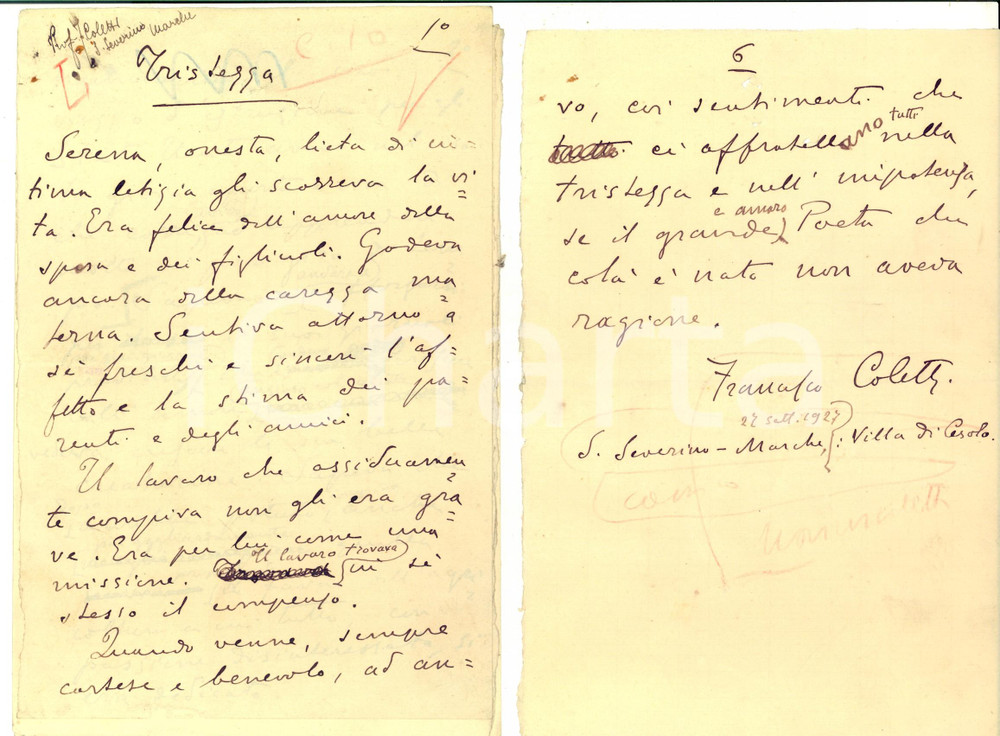 Prof. F. Coletti
S. Severino Marche
1º
Tristezza
Serena, onesta, lieta di in=
tima letizia gli scorreva la vi=
ta. Era felice dell'amore della
sposa e dei figliuoli. Godeva
ancora della carezza ma=
terna. Sentiva attorno a
sè freschi e sinceri l'af=
fetto e la stima dei pa=
renti e degli amici.
Il lavoro che assiduamen
te compiva non gli era gra=
ve. Era per lui come una
missione. Il lavoro trovava in sè
stesso il compenso.
Quando venne, sempre
cortese e benevolo, ad an=
6
vo, coi sentimenti che
ci affratellano tutti nella
tristezza e nell'impotenza,
se il grande e amaro Poeta che
colà è nato non aveva
ragione.
Francesco Coletti.
27 sett. 1927
S. Severino - Marche, : Villa di Cesolo.
iCharta